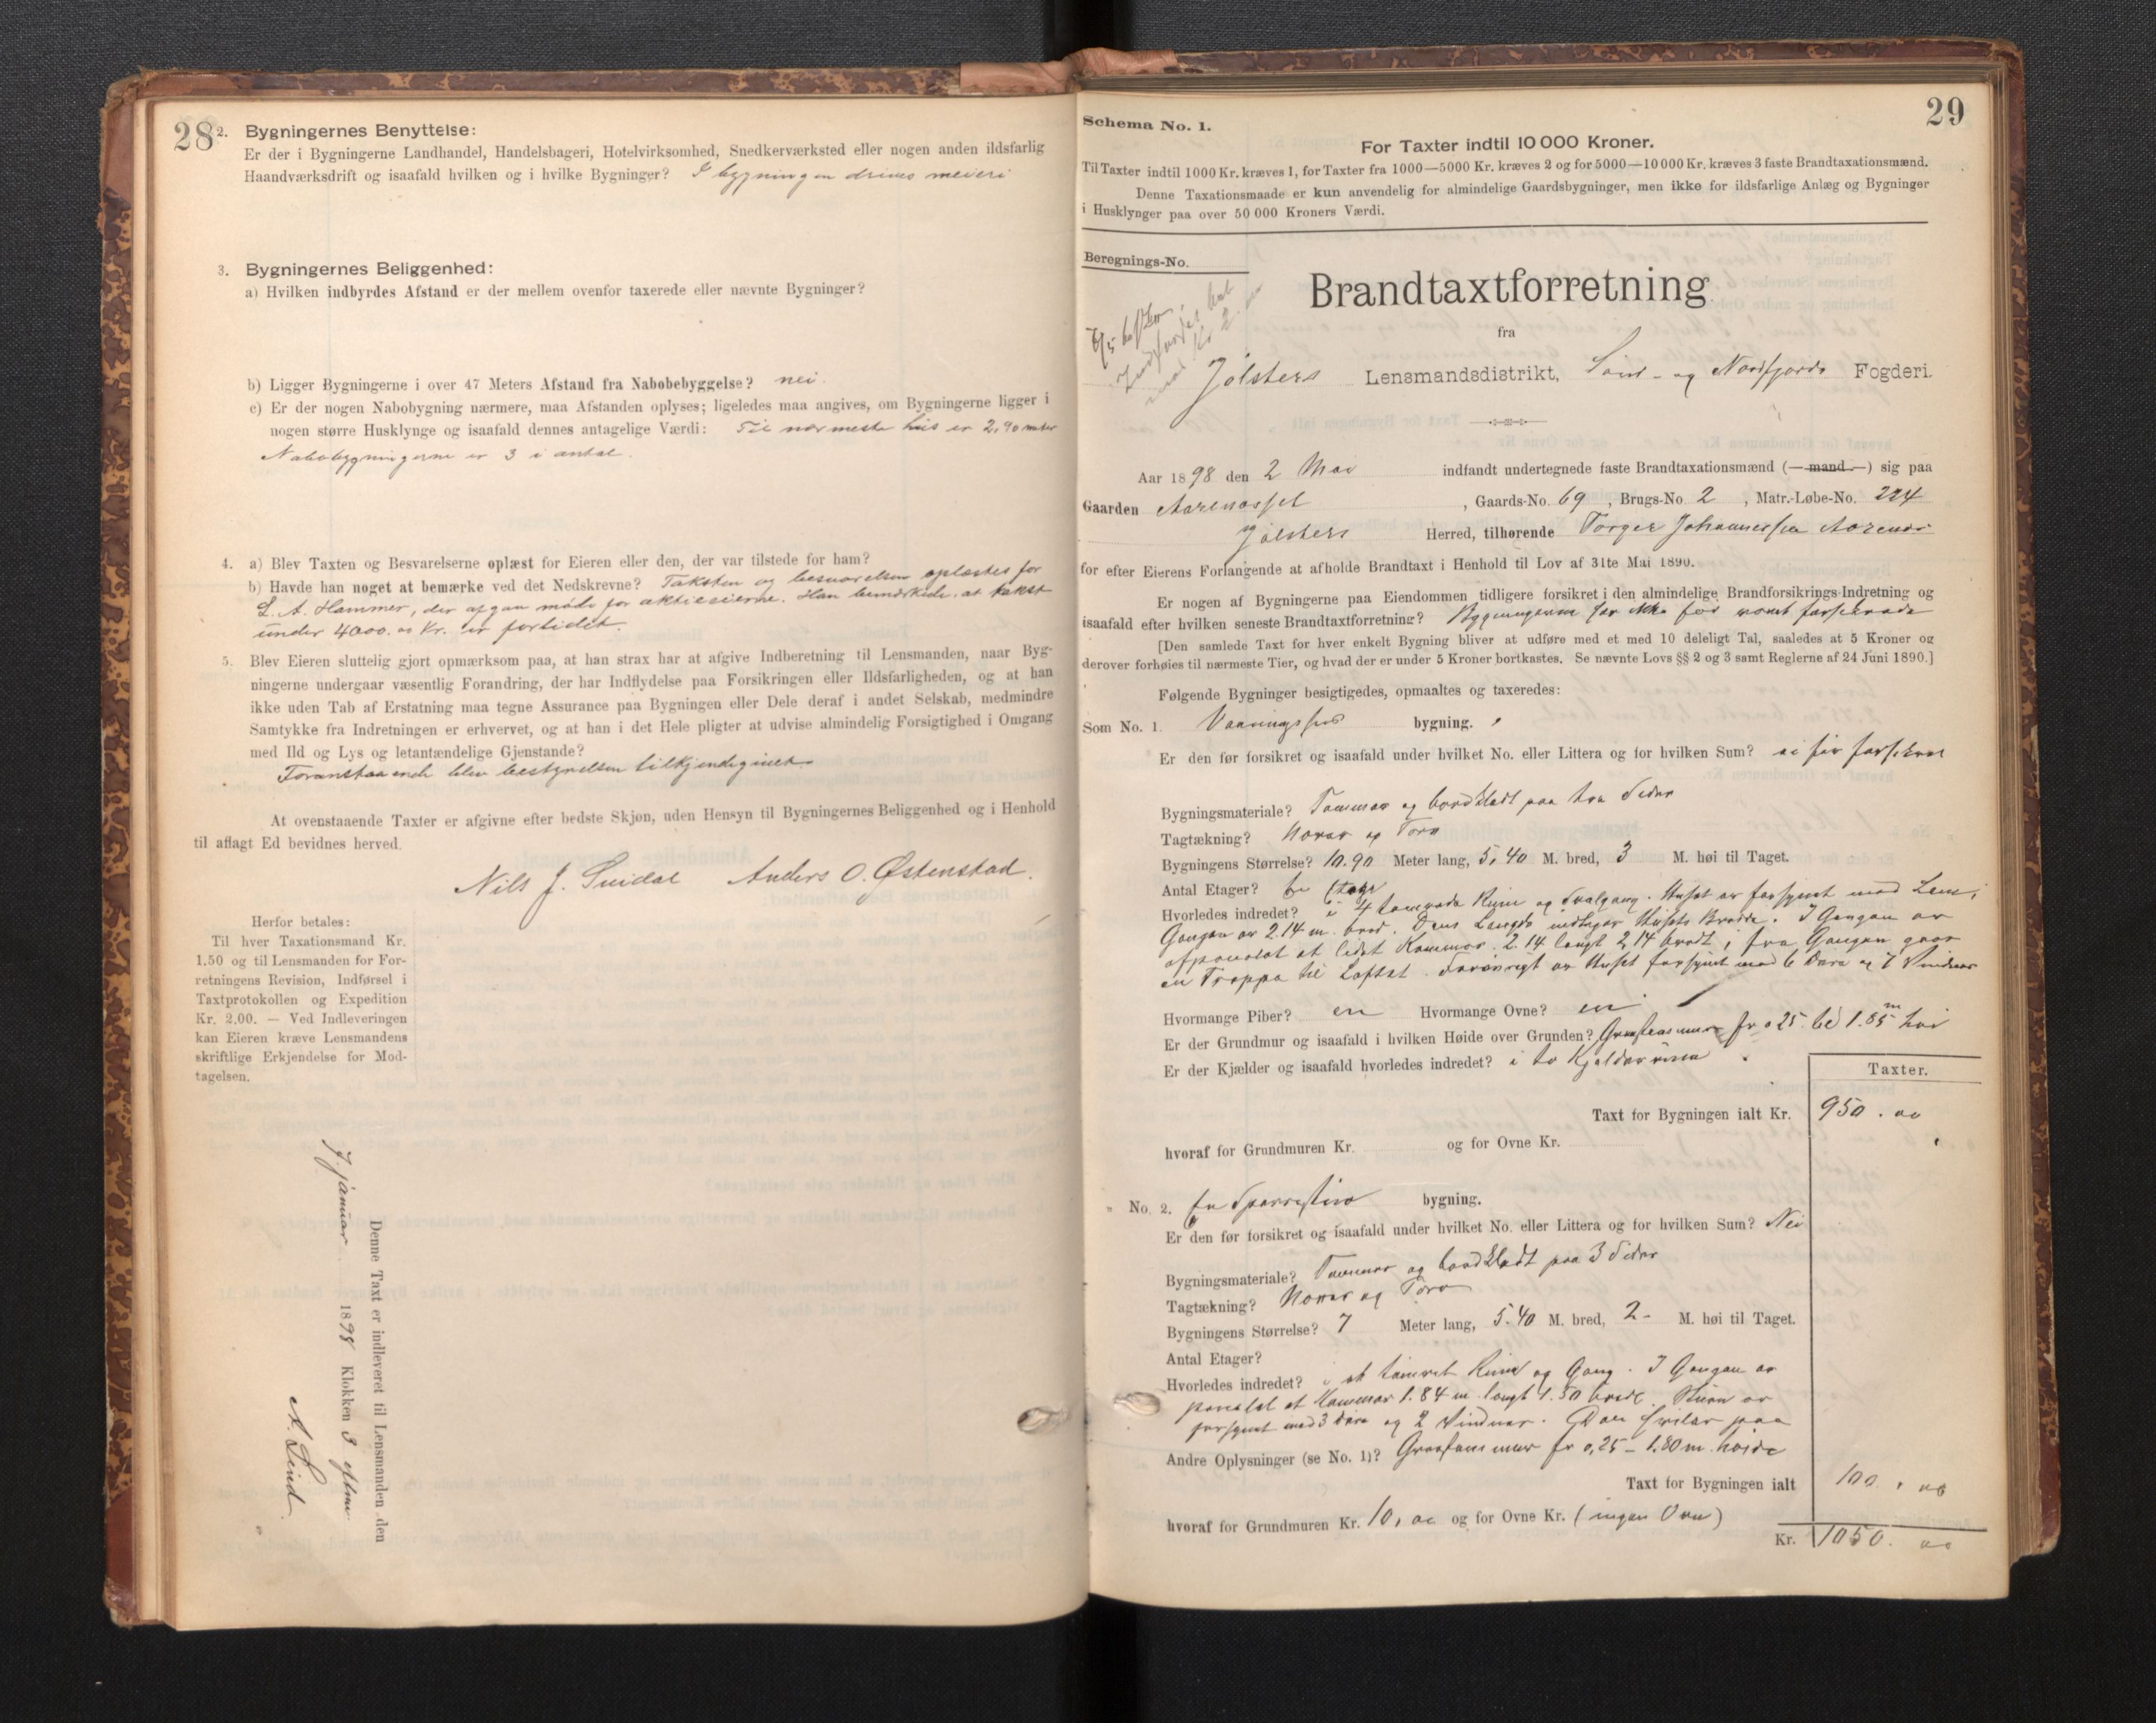 28
2. Bygningernes Benyttelse:
Er der i Bygningerne Landhandel, Handelsbageri, Hotelvirksomhed, Snedkerværksted eller nogen anden ildsfarlig
Haandværksdrift og isaafald hvilken og i hvilke Bygninger? I bygningen drives meieri
3. Bygningernes Beliggenhed:
a) Hvilken indbyrdes Afstand er der mellem ovenfor taxerede eller nævnte Bygninger?
b) Ligger Bygningerne i over 47 Meters Afstand fra Nabobebyggelse? nei.
c) Er der nogen Nabobygning nærmere, maa Afstanden oplyses; ligeledes maa angives, om Bygningerne ligger i
nogen større Husklynge og isaafald dennes antagelige Værdi: Til nærmeste hus er 2,90 meter
Nabobygningerne er 3 i antal.
4. a) Blev Taxten og Besvarelserne oplæst for Eieren eller den, der var tilstede for ham?
b) Havde han noget at bemærke ved det Nedskrevne? Taksten og besvarelsen oplæstes for
L. A. Hammer, der afgav møde for aktieeierne. Han bemærkede, at takst
under 4000.00 Kr. er for lidet.
5. Blev Eieren sluttelig gjort opmærksom paa, at han strax har at afgive Indberetning til Lensmanden, naar Byg-
ningerne undergaar væsentlig Forandring, der har Indflydelse paa Forsikringen eller Ildsfarligheden, og at han
ikke uden Tab af Erstatning maa tegne Assurance paa Bygningen eller Dele deraf i andet Selskab, medmindre
Samtykke fra Indretningen er erhvervet, og at han i det Hele pligter at udvise almindelig Forsigtighed i Omgang
med Ild og Lys og letantændelige Gjenstande?
Foranstaaende blev bestyrelsen tilkjendegivet.
At ovenstaaende Taxter er afgivne efter bedste Skjøn, uden Hensyn til Bygningernes Beliggenhed og i Henhold
til aflagt Ed bevidnes herved.
Nils J. Svidal Anders O. Østenstad.
Herfor betales:
Til hver Taxationsmand Kr.
1.50 og til Lensmanden for For-
retningens Revision, Indførsel i
Taxtprotokollen og Expedition
Kr. 2.00. — Ved Indleveringen
kan Eieren kræve Lensmandens
skriftlige Erkjendelse for Mod-
tagelsen.
Denne Taxt er indleveret til Lensmanden den
7 januar 1898 Klokken 3 eftm.
A. Sind
29
Schema No. 1.
For Taxter indtil 10 000 Kroner.
Til Taxter indtil 1000 Kr. kræves 1, for Taxter fra 1000—5000 Kr. kræves 2 og for 5000—10 000 Kr. kræves 3 faste Brandtaxationsmænd.
Denne Taxationsmaade er kun anvendelig for almindelige Gaardsbygninger, men ikke for ildsfarlige Anlæg og Bygninger
i Husklynger paa over 50 000 Kroners Værdi.
Beregnings-No.
Brandtaxtforretning
fra
Jølsters Lensmandsdistrikt, Sønd- og Nordfjords Fogderi.
Aar 1898 den 2 Mai indfandt undertegnede faste Brandtaxationsmænd (— mand —) sig paa
Gaarden Aarenæsset, Gaards-No. 69, Brugs-No. 2, Matr.-Løbe-No. 224
Jølsters Herred, tilhørende Torger Johannessen Aarenæs
for efter Eierens Forlangende at afholde Brandtaxt i Henhold til Lov af 31te Mai 1890.
Er nogen af Bygningerne paa Eiendommen tidligere forsikret i den almindelige Brandforsikrings-Indretning og
isaafald efter hvilken seneste Brandtaxtforretning? Bygningerne har ikke før været forsikrede
[Den samlede Taxt for hver enkelt Bygning bliver at udføre med et med 10 deleligt Tal, saaledes at 5 Kroner og
derover forhøies til nærmeste Tier, og hvad der er under 5 Kroner bortkastes. Se nævnte Lovs §§ 2 og 3 samt Reglerne af 24 Juni 1890.]
Følgende Bygninger besigtigedes, opmaaltes og taxeredes:
Som No. 1. Vaaningshus bygning.
Er den før forsikret og isaafald under hvilket No. eller Littera og for hvilken Sum? ei før forsikret
Bygningsmateriale? Tømmer og bordklædt paa tre Sider
Tagtækning? Næver og Torv
Bygningens Størrelse? 10.90 Meter lang, 5,40 M. bred, 3 M. høi til Taget.
Antal Etager? En Etage
Hvorledes indredet? i 4 tømrede Rum og Svalgang. Huset er forsynet med Lem;
Gangen er 2.14 m. bred. Dens Længde udgjør Husets Bredde. I Gangen er
afpanelet et lidet Kammer 2.14 langt 2,14 bredt; fra Gangen gaar
en Trappe til Loftet. Forøvrigt er Huset forsynet med 6 Døre og 7 Vinduer
Hvormange Piber? en Hvormange Ovne? en
Er der Grundmur og isaafald i hvilken Høide over Grunden? Graastensmur fr 0 25 til 1.85 m høi
Er der Kjælder og isaafald hvorledes indredet? i to Kjælderrum
Taxter.
Taxt for Bygningen ialt Kr. 950.00
hvoraf for Grundmuren Kr. og for Ovne Kr.
" No. 2. En Sperrestue bygning.
Er den før forsikret og isaafald under hvilket No. eller Littera og for hvilken Sum? Nei
Bygningsmateriale? Tømmer og bordklædt paa 3 Sider
Tagtækning? Næver og Torv
Bygningens Størrelse? 7 Meter lang, 5.40 M. bred, 2- M. høi til Taget.
Antal Etager?
Hvorledes indredet? i et tømret Rum og Gang. I Gangen er
panelet et Kammer 1.84 m. langt 1.50 bredt. Stuen er
forsynet med 3 Døre og 2 Vinduer. Den hviler paa
Andre Oplysninger (se No. 1)? Graastensmur fr 0,25 - 1.80 m. høide
Taxt for Bygningen ialt 100.00
hvoraf for Grundmuren Kr. 10,00 og for Ovne Kr. (ingen Ovn)
Kr. 1050.00